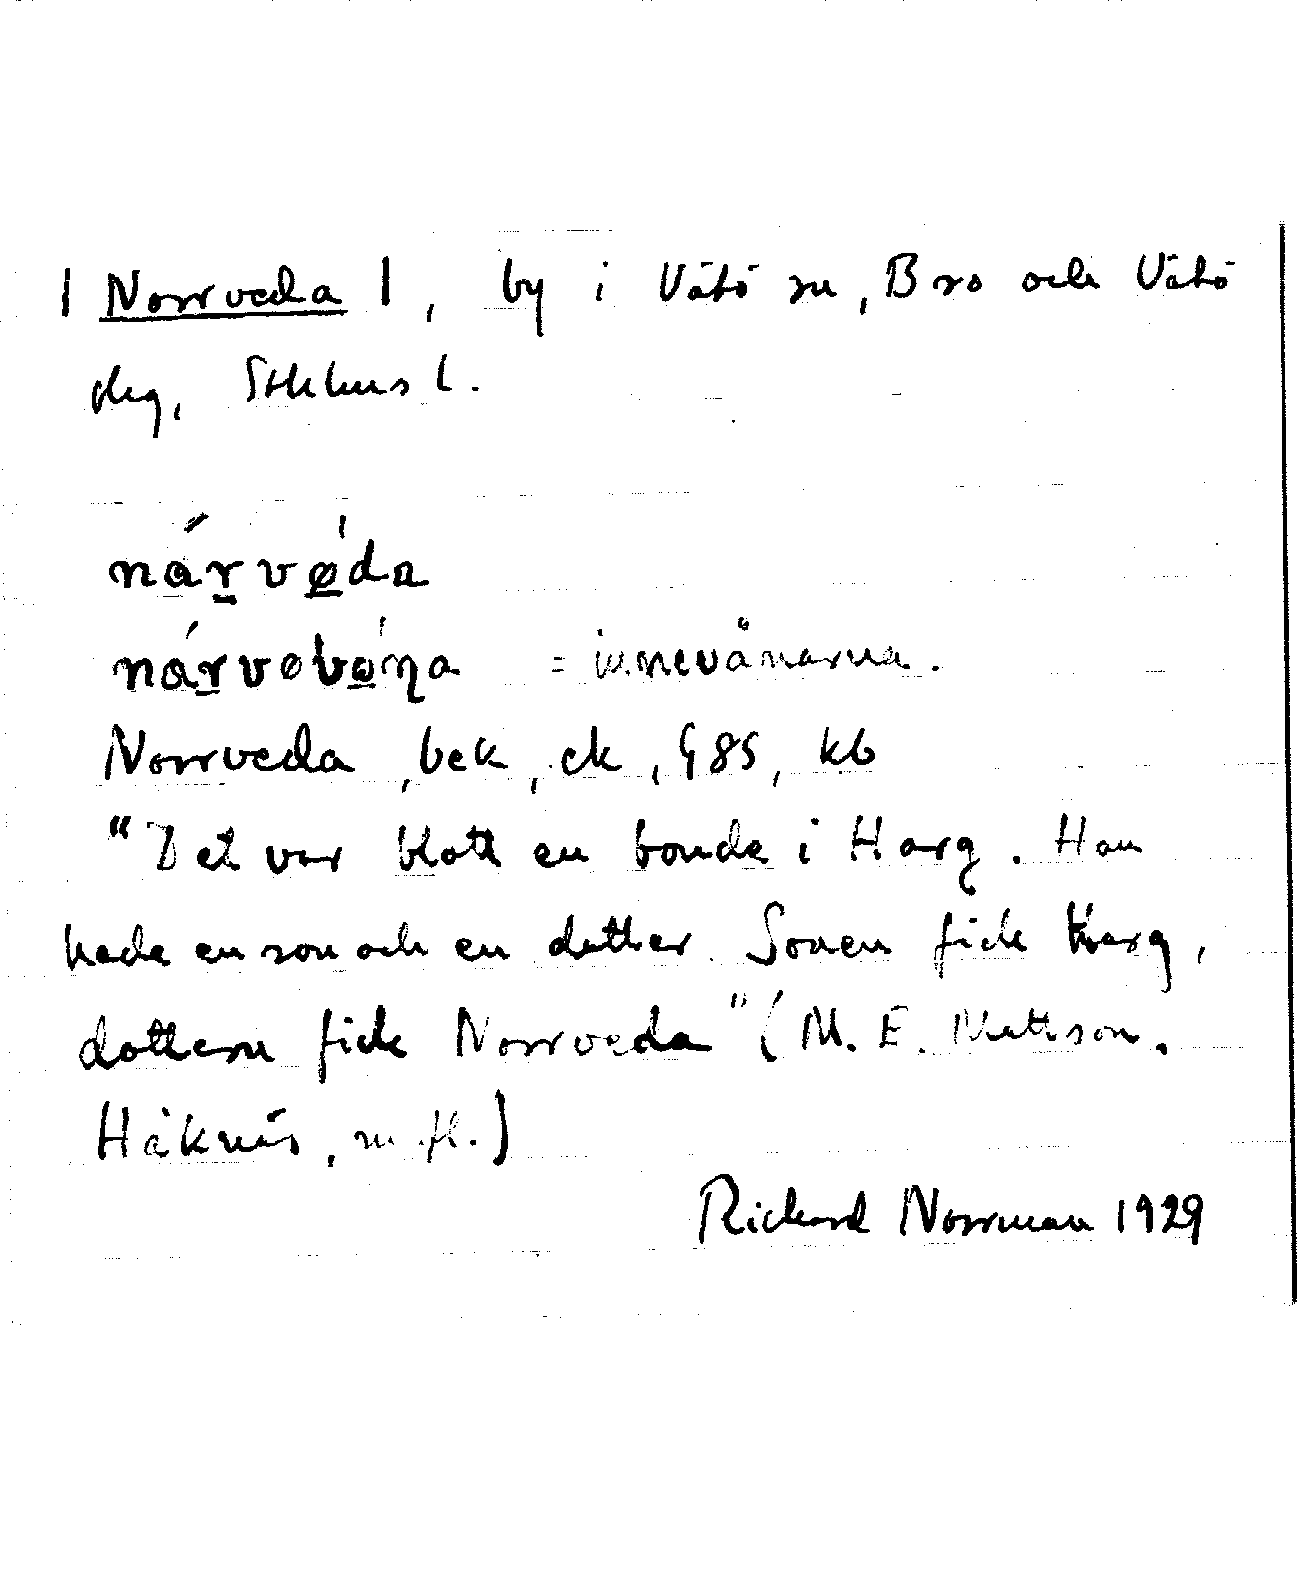 | Norrveda |, by i Vätö sn, Bro och Vätö
skg, Sthlms l.
nárvøda
nárvøbøna = innevånarna.
Norrveda, bek, ek, G85, kb
"Det var blott en bonde i Harg. Han
hade en son och en dotter. Sonen fick Harg,
dottern fick Norrveda" (M. E. Mattsson.
Håknäs, m.fl.)
Rickard Norrman 1929